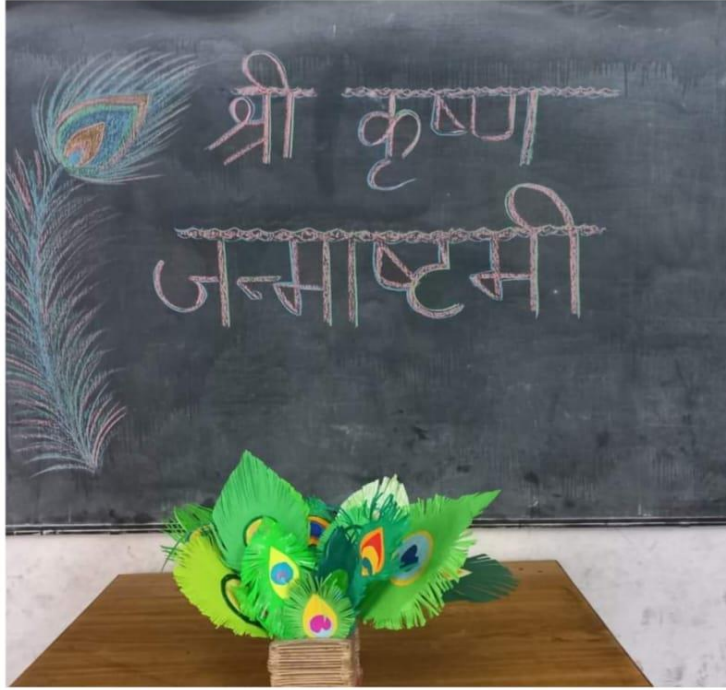 श्री कृष्ण
जन्माष्टमी